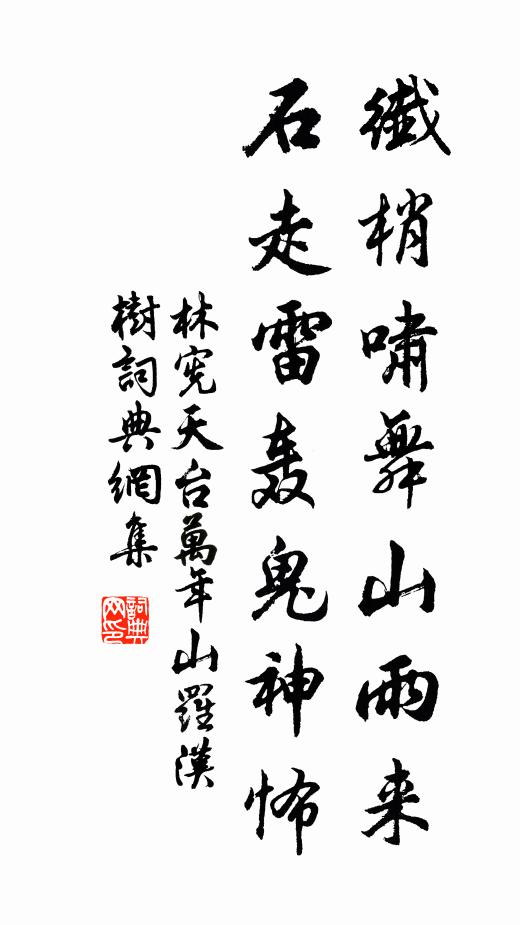 纖梢嘯舞山雨来
石走雷轰鬼神怖
林寃天台萬年山羅漢
樹詞典網集
詞典网印